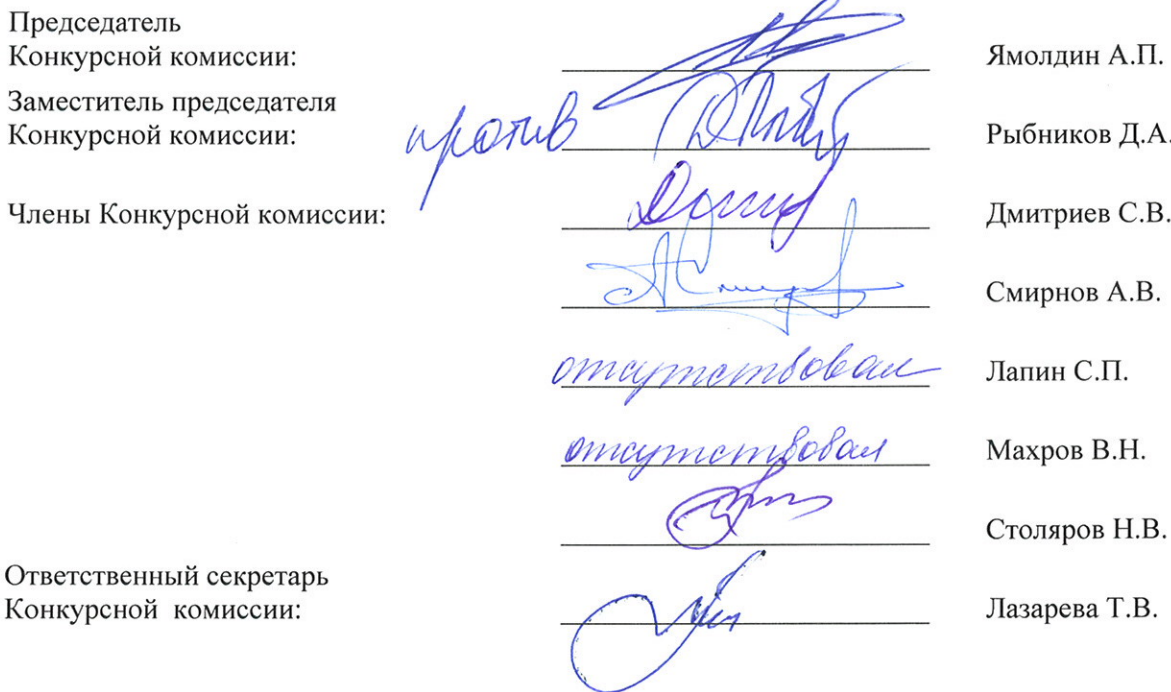 Председатель
Конкурсной комиссии: Ямолдин А.П.
Заместитель председателя
Конкурсной комиссии: против Рыбников Д.А.
Члены Конкурсной комиссии: Дмитриев С.В.
Смирнов А.В.
отсутствовал Лапин С.П.
отсутствовал Махров В.Н.
Столяров Н.В.
Ответственный секретарь
Конкурсной комиссии: Лазарева Т.В.